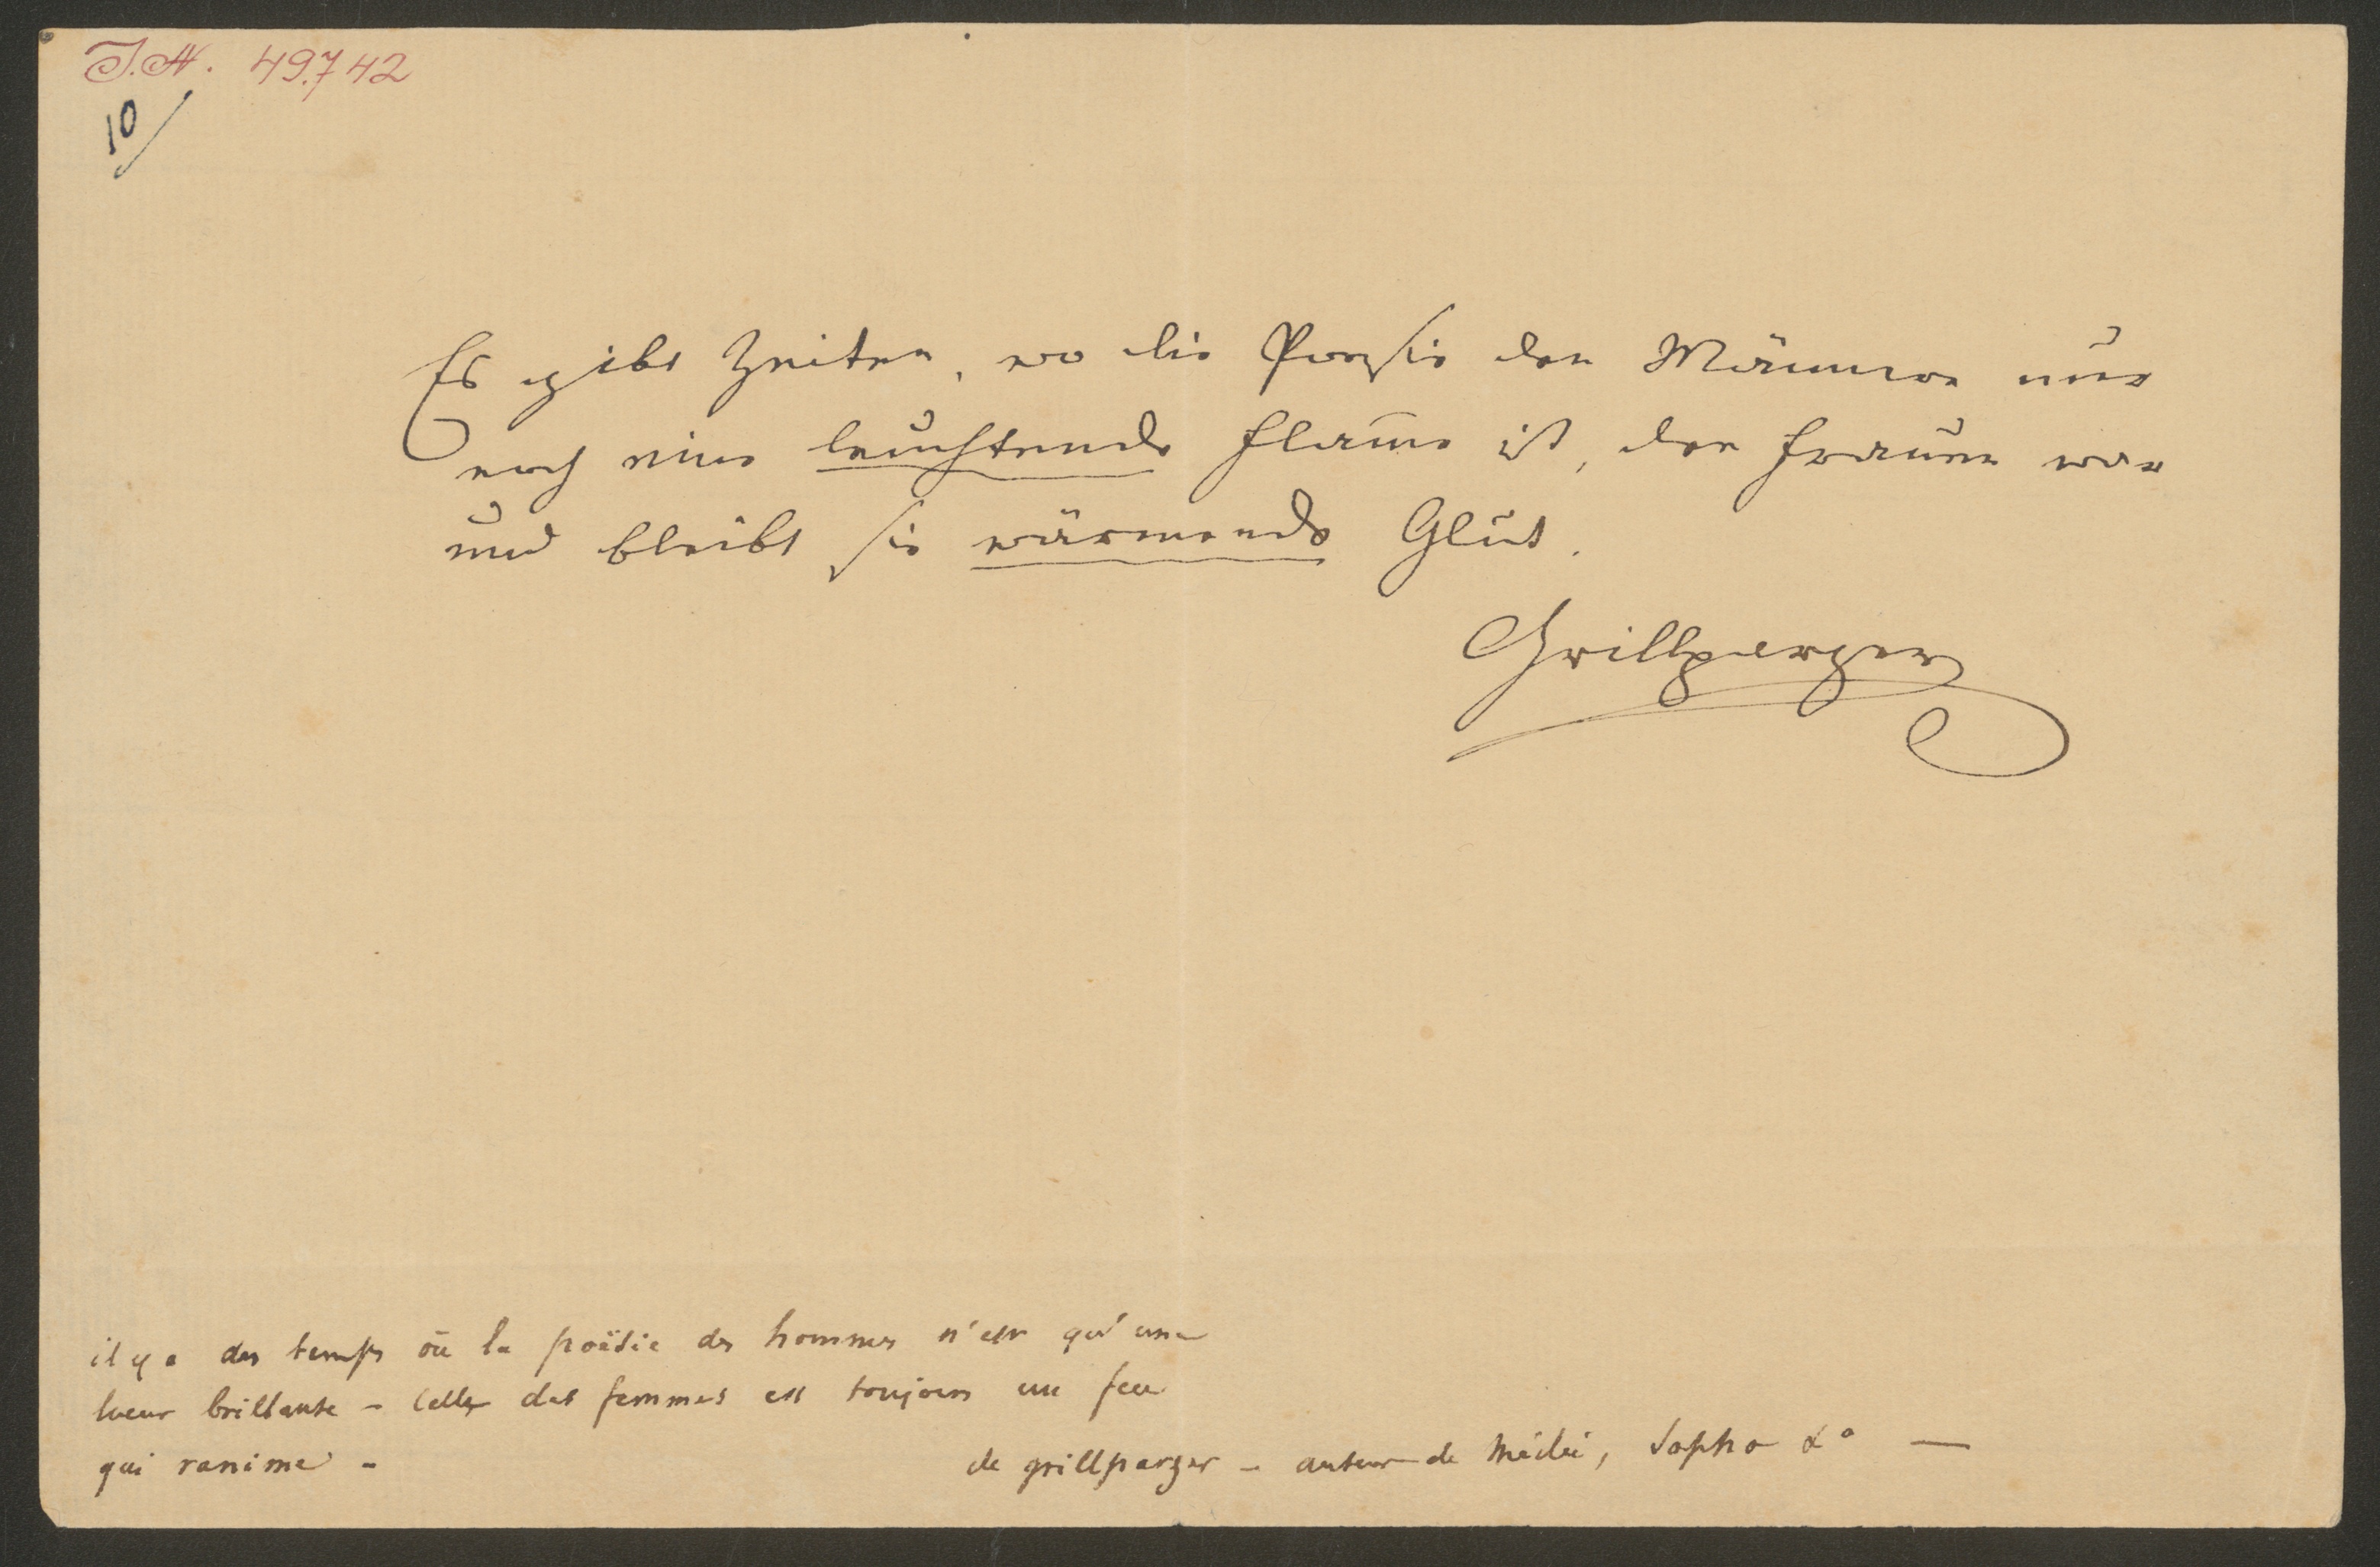 I.N. 49.742
10/
Es gibt Zeiten, wo die Poesie der Männer nur
noch eine leuchtende Flam̄e ist, der Frauen war
und bleibt sie wärmende Glut.
Grillparzer
il y a des temps où la poësie des hommes n'est qu'une
lueur brillante – celle des femmes est toujours un feu
qui ranime –
de grillparzer – auteur de Médée, Sapho &a —